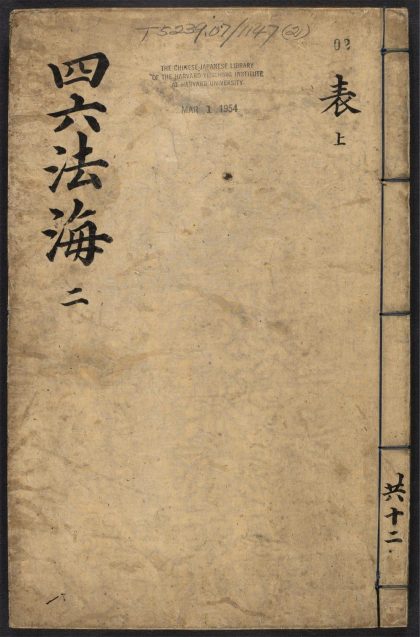 T5239.07/1147(2)
02
THE CHINESE-JAPANESE LIBRARY
OF THE HARVARD-YENCHING INSTITUTE
AT HARVARD UNIVERSITY
MAR 1 1954
表上
四六法海 二
共十二